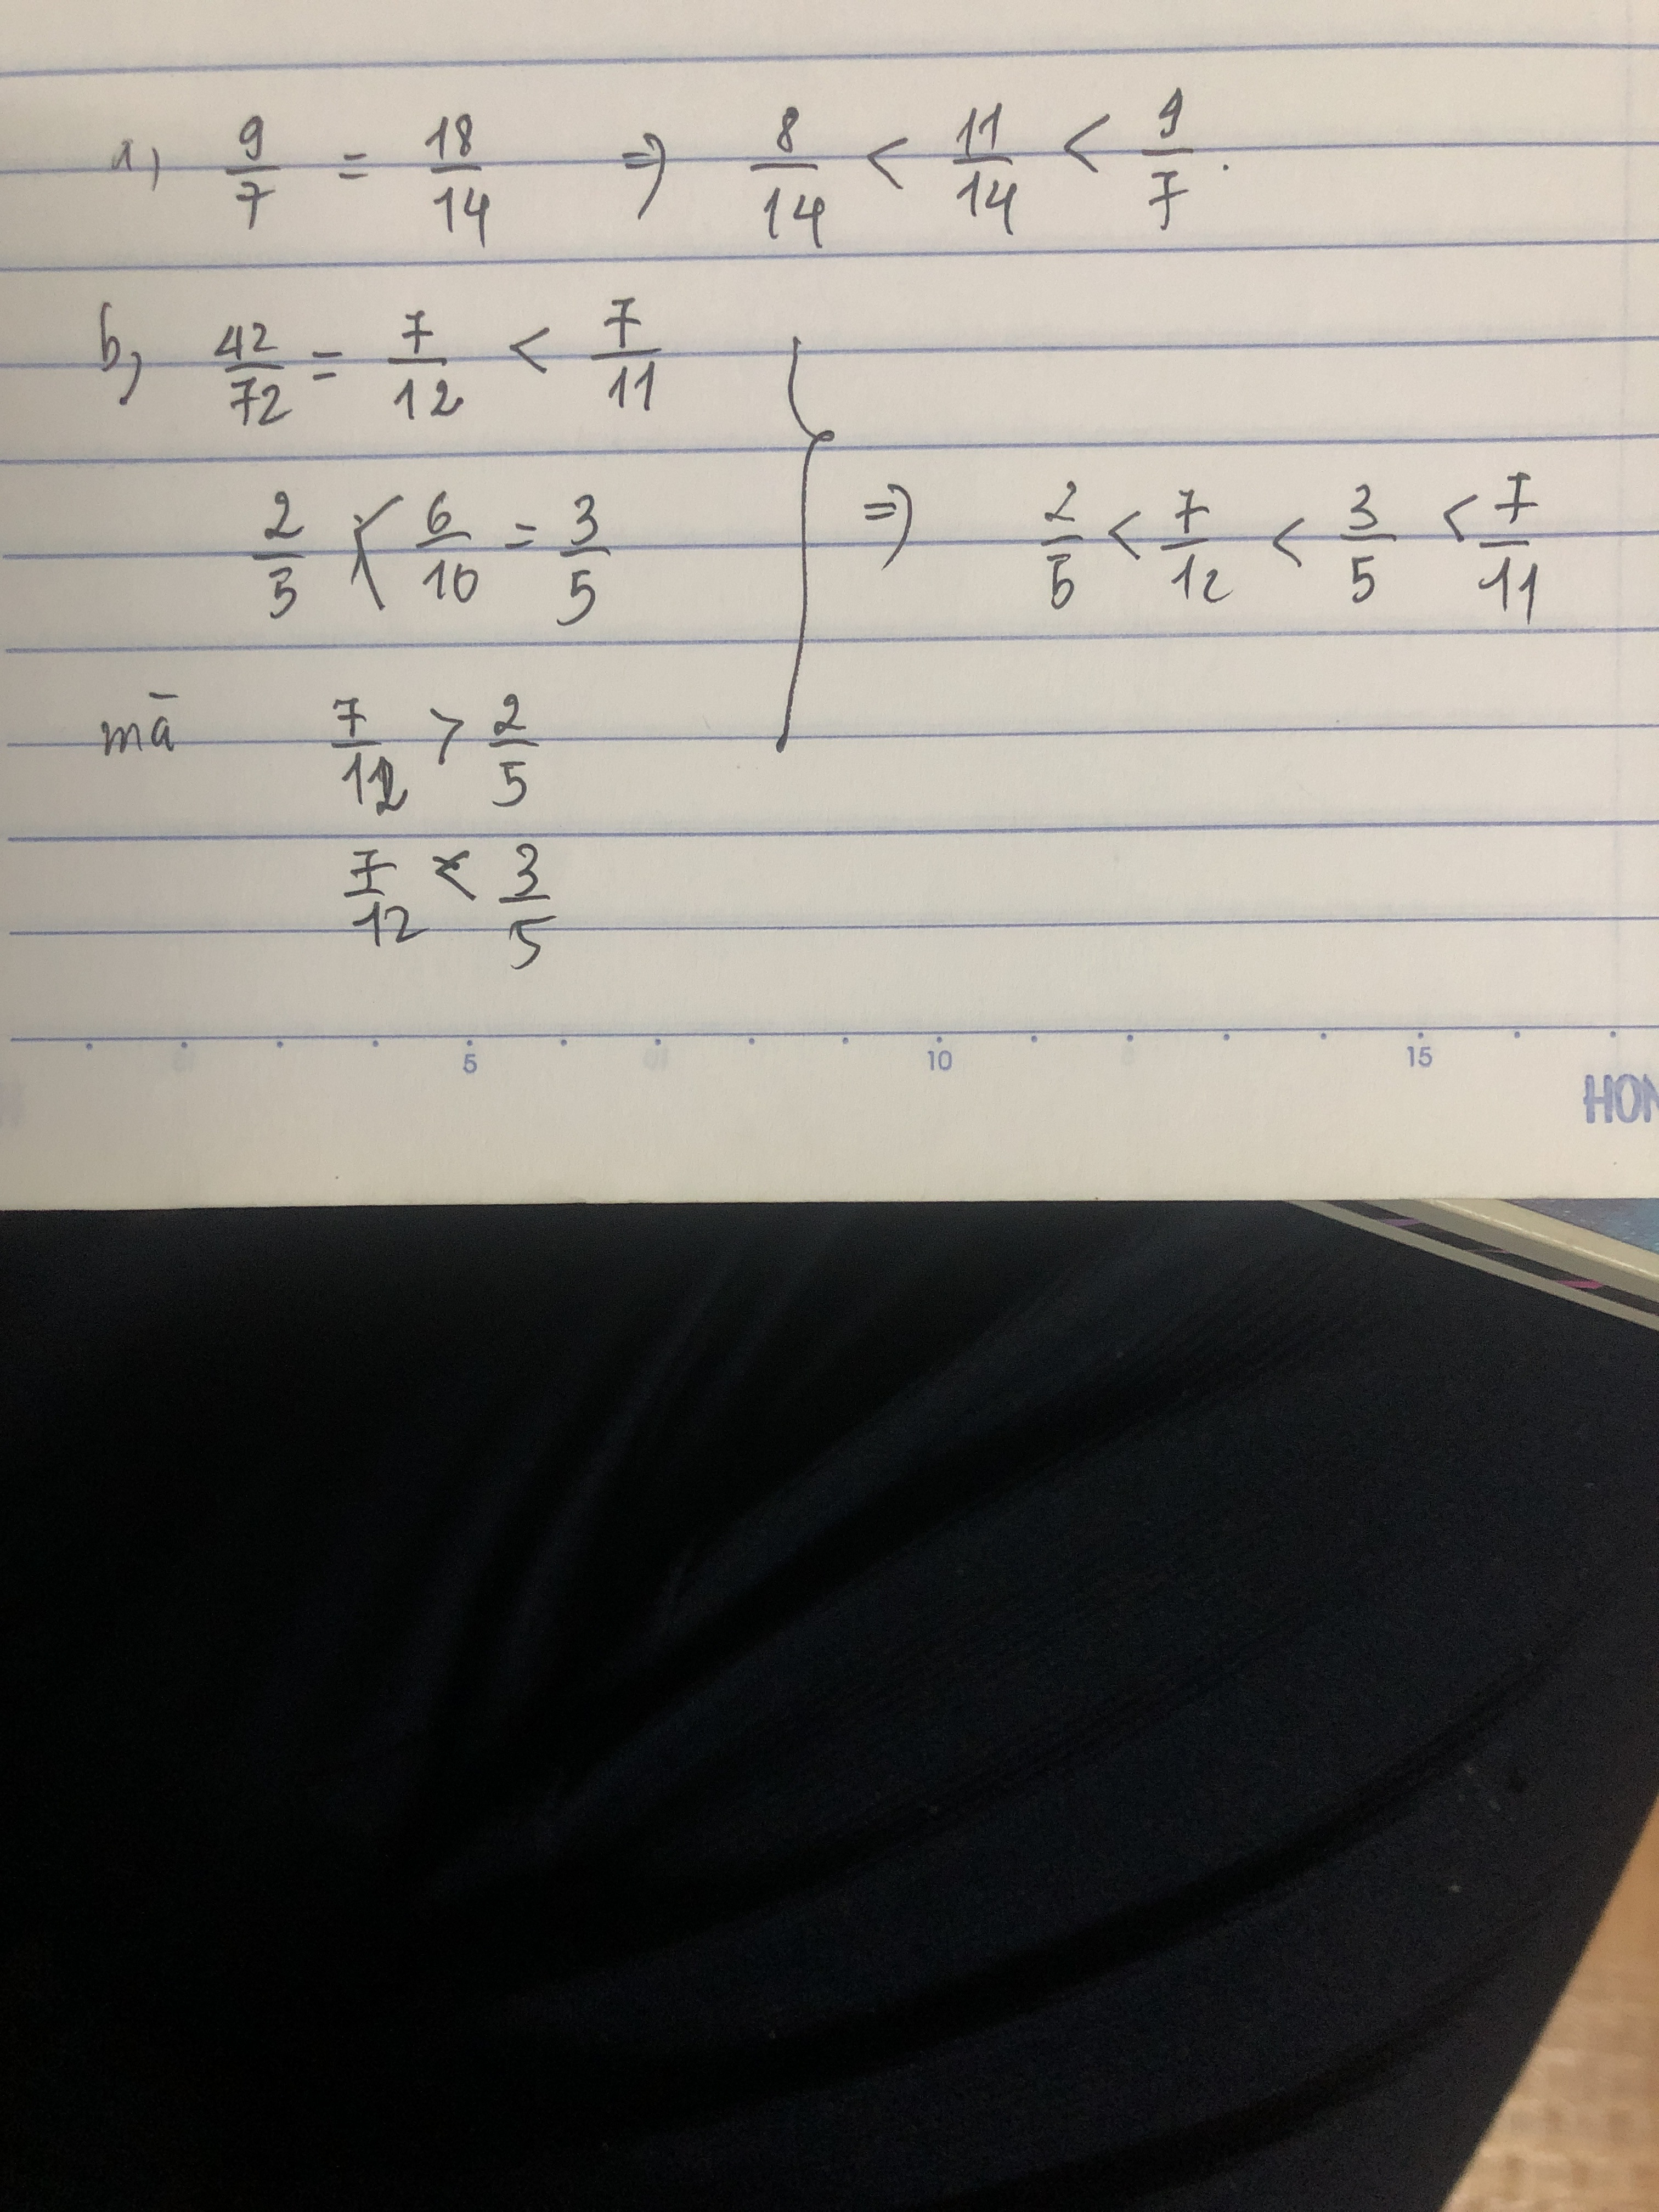 a) 9/7 = 18/14 => 8/14 < 11/14 < 9/7.
b, 42/72 = 7/12 < 7/11
2/5 < 6/10 = 3/5 => 2/5 < 7/12 < 3/5 < 7/11
mà 7/12 > 2/5
7/12 < 3/5
5 10 15
HON